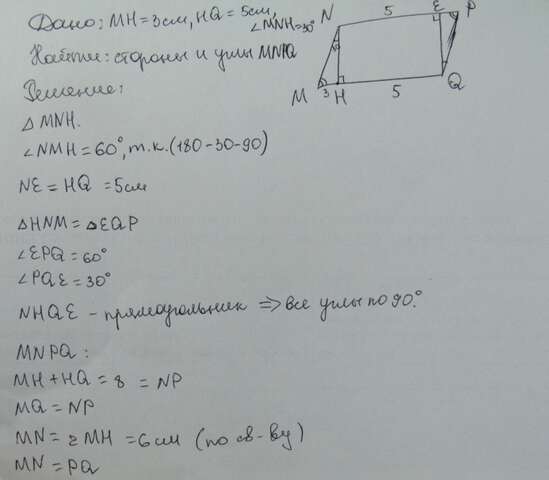 Дано: MH = 3 см, HQ = 5 см,
∠MNH = 30°
Найти: стороны и углы MNPQ
Решение:
△ MNH.
∠NMH = 60°, т.к. (180-30-90)
NE = HQ = 5 см
△HNM = △EQP
∠EPQ = 60°
∠PQE = 30°
NHQE - прямоугольник ⇒ все углы по 90°.
MNPQ:
MH + HQ = 8 = NP
MQ = NP
MN = 2 MH = 6 см (по св-ву)
MN = PQ
N 5 E P
M 3 H 5 Q